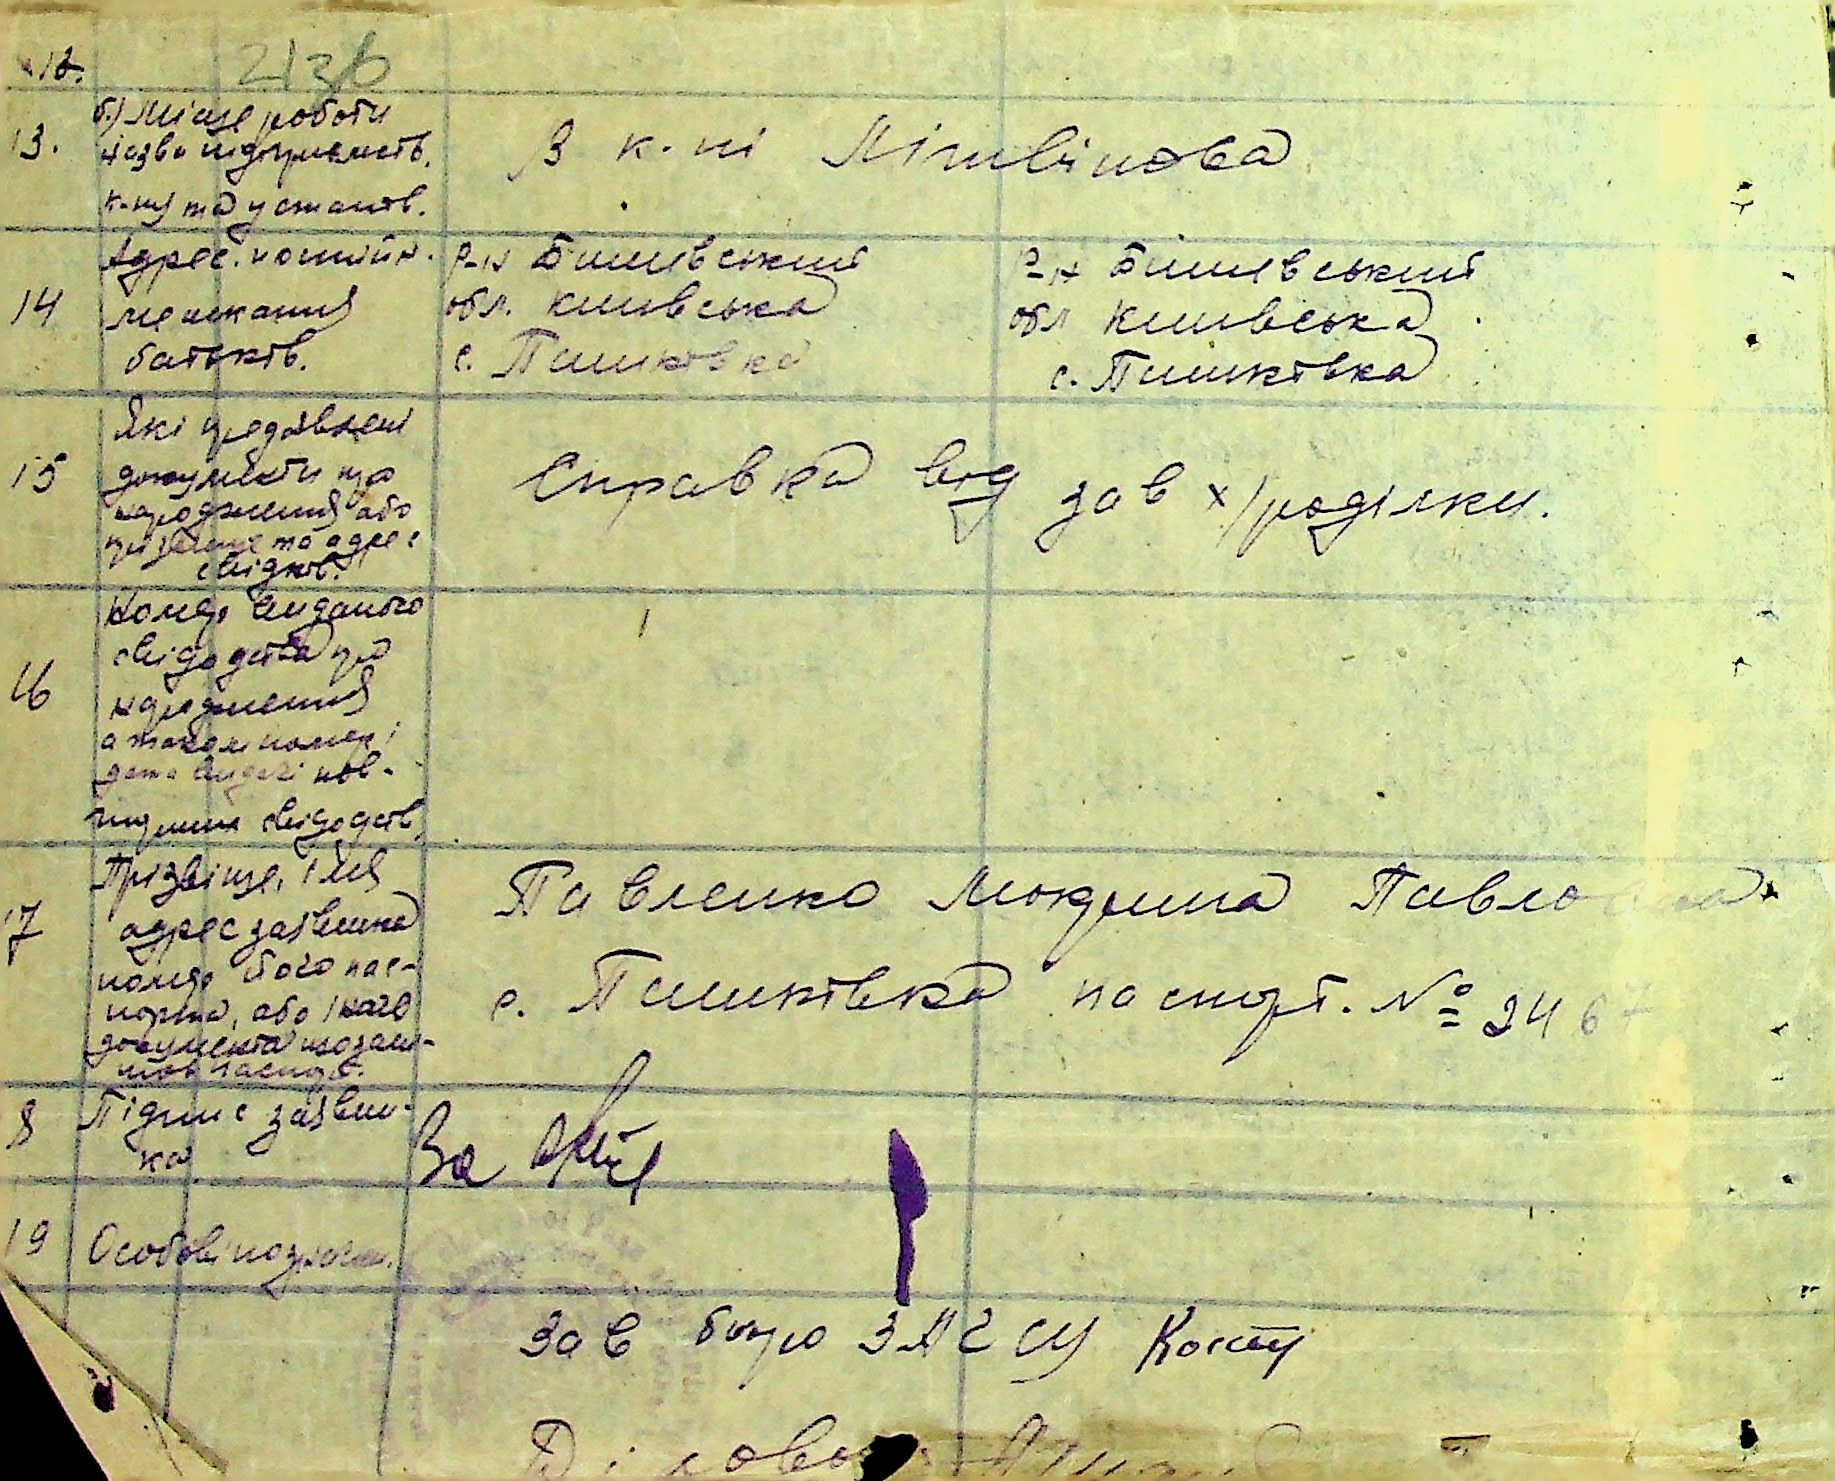 12.
13. б) Місце роботи
назва підприємств.
к-ну та установ.
В к-ні Літвінова
14 Адрес. постійн.
мешкання
батьків.
Р-н Бишивський
обл. Київська
с. Пашківка
Р-н Бишивський
обл Київська
с. Пашківка
15 Які предявлені
документи про
народження або
прізвище та адрес
свідків.
Справка від зав х/роділки.
16 Номер виданого
свідодства про
народження
а також номер і
дата видачі пов-
торних свідодств.
17 Прізвіще, імя
адрес заявника
номер його пас-
порта, або іного
документа
Павленко Мокрина Павловна
с. Пашківка паспорт. № 246
8 Підпис заявни-
ка
За
19 Особові познач.
Зав бюро ЗАГСУ